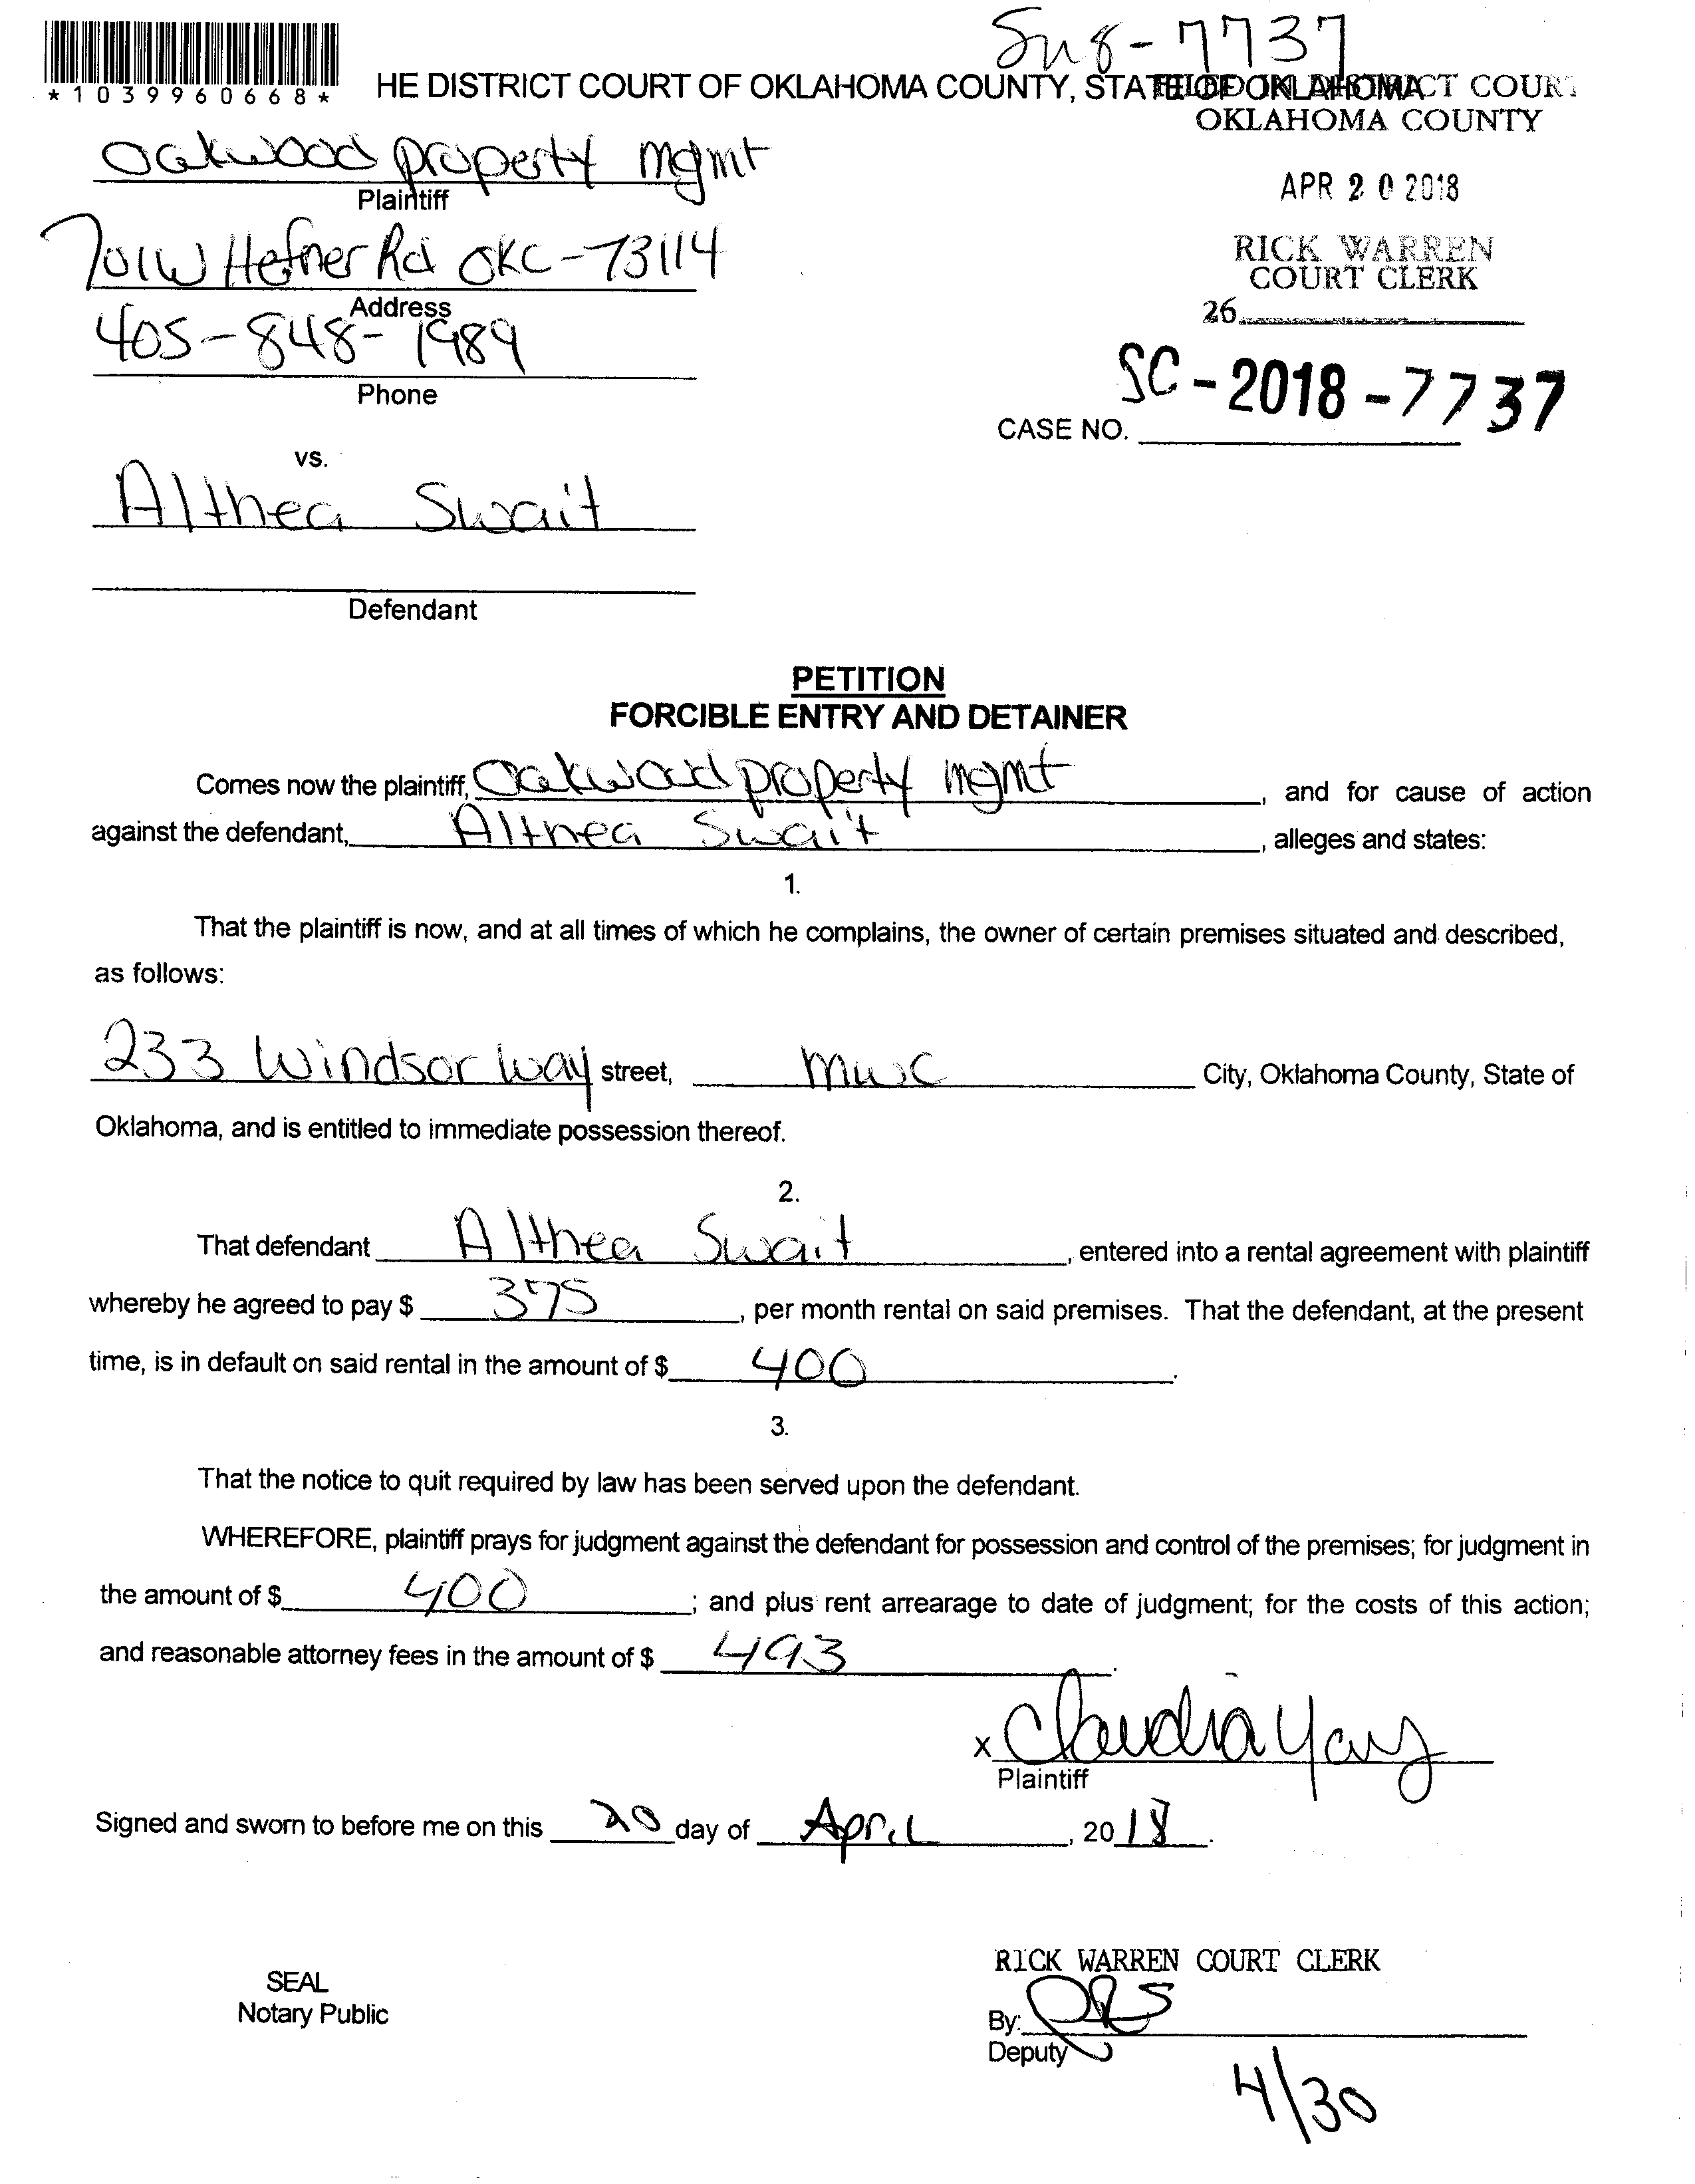 *1039960668*
Sm8-7737
HE DISTRICT COURT OF OKLAHOMA COUNTY, STATE OF OKLAHOMA
FILED IN DISTRICT COURT
OKLAHOMA COUNTY
Oakwood property mgmt
Plaintiff
APR 20 2018
701 W Hefner Rd OKC-73114
Address
RICK WARREN
COURT CLERK
26
405-848-1989
Phone
SC-2018-7737
CASE NO.
vs.
Althea Swait
Defendant
PETITION
FORCIBLE ENTRY AND DETAINER
Comes now the plaintiff, Oakwood property mgmt, and for cause of action
against the defendant, Althea Swait, alleges and states:
1.
That the plaintiff is now, and at all times of which he complains, the owner of certain premises situated and described,
as follows:
233 Windsor Way street, mwc City, Oklahoma County, State of
Oklahoma, and is entitled to immediate possession thereof.
2.
That defendant Althea Swait, entered into a rental agreement with plaintiff
whereby he agreed to pay $ 375, per month rental on said premises. That the defendant, at the present
time, is in default on said rental in the amount of $ 400.
3.
That the notice to quit required by law has been served upon the defendant.
WHEREFORE, plaintiff prays for judgment against the defendant for possession and control of the premises; for judgment in
the amount of $ 400; and plus rent arrearage to date of judgment; for the costs of this action;
and reasonable attorney fees in the amount of $ 493.
x Claudia Yary
Plaintiff
Signed and sworn to before me on this 20 day of April, 2018.
SEAL
Notary Public
RICK WARREN COURT CLERK
By:
Deputy
4/30